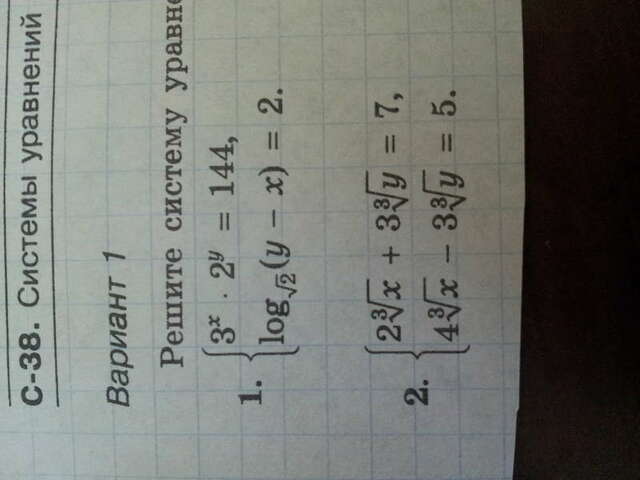 С-38. Системы уравнений
Вариант 1
Решите систему
1. {3^x · 2^y = 144,
log_√2 (y − x) = 2.
2. {2∛x + 3∛y = 7,
4∛x − 3∛y = 5.